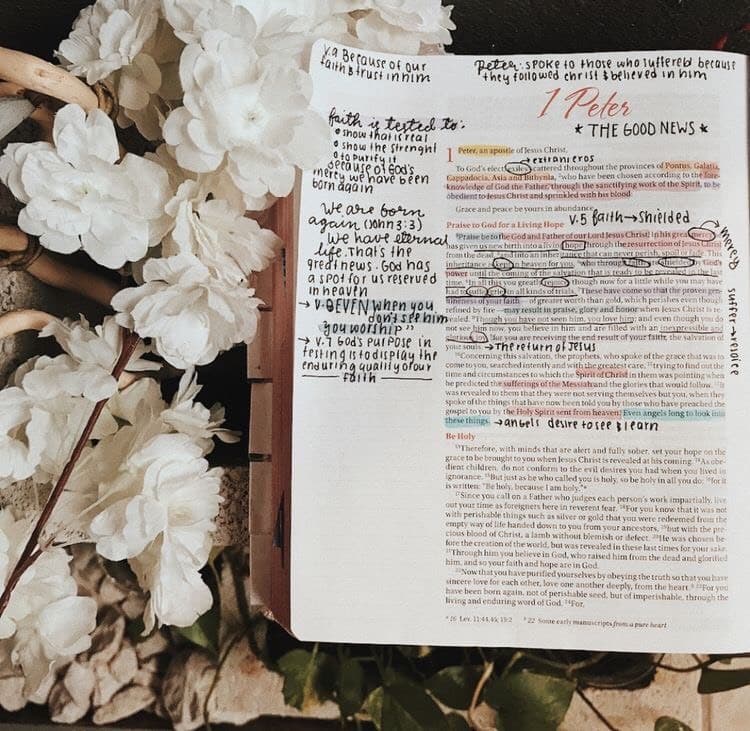 v.9 Because of our
faith & trust in him
Peter: spoke to those who suffered because
they followed christ & believed in him
faith is tested to:
show that is real
show the strenght
to purify it
because of God's
mercy we have been
born again
We are born
again (John 3:3)
We have eternal
life. That's the
great news. God has
a spot for us reserved
in heaven
→ v.8 EVEN when you
don't see him
you worship"
→ v.7 God's purpose in
testing is to display the
enduring quality of our
faith
1 Peter
★ THE GOOD NEWS ★
1 Peter, an apostle of Jesus Christ,
→ extranjeros
To God's elect, exiles scattered throughout the provinces of Pontus, Galatia,
Cappadocia, Asia and Bithynia, ²who have been chosen according to the fore-
knowledge of God the Father, through the sanctifying work of the Spirit, to be
obedient to Jesus Christ and sprinkled with his blood:
Grace and peace be yours in abundance.
v.5 faith → shielded
Praise to God for a Living Hope
³Praise be to the God and Father of our Lord Jesus Christ! In his great mercy
has given us new birth into a living hope through the resurrection of Jesus Christ
from the dead, and into an inheritance that can never perish, spoil or fade. This
inheritance is kept in heaven for you, who through faith are shielded by God's
power until the coming of the salvation that is ready to be revealed in the last
time. ⁶In all this you greatly rejoice, though now for a little while you may have
had to suffer grief in all kinds of trials. ⁷These have come so that the proven gen-
uineness of your faith—of greater worth than gold, which perishes even though
refined by fire—may result in praise, glory and honor when Jesus Christ is re-
vealed. ⁸Though you have not seen him, you love him; and even though you do
not see him now, you believe in him and are filled with an inexpressible and
glorious joy, ⁹for you are receiving the end result of your faith, the salvation of
your souls. → The return of Jesus
mercy
suffer → rejoice
¹⁰Concerning this salvation, the prophets, who spoke of the grace that was to
come to you, searched intently and with the greatest care, ¹¹trying to find out the
time and circumstances to which the Spirit of Christ in them was pointing when
he predicted the sufferings of the Messiah and the glories that would follow. ¹²It
was revealed to them that they were not serving themselves but you, when they
spoke of the things that have now been told you by those who have preached the
gospel to you by the Holy Spirit sent from heaven. Even angels long to look into
these things. → angels desire to see & learn
Be Holy
¹³Therefore, with minds that are alert and fully sober, set your hope on the
grace to be brought to you when Jesus Christ is revealed at his coming. ¹⁴As obe-
dient children, do not conform to the evil desires you had when you lived in
ignorance. ¹⁵But just as he who called you is holy, so be holy in all you do; ¹⁶for it
is written: "Be holy, because I am holy."ᵃ
¹⁷Since you call on a Father who judges each person's work impartially, live
out your time as foreigners here in reverent fear. ¹⁸For you know that it was not
with perishable things such as silver or gold that you were redeemed from the
empty way of life handed down to you from your ancestors, ¹⁹but with the pre-
cious blood of Christ, a lamb without blemish or defect. ²⁰He was chosen be-
fore the creation of the world, but was revealed in these last times for your sake.
²¹Through him you believe in God, who raised him from the dead and glorified
him, and so your faith and hope are in God.
²²Now that you have purified yourselves by obeying the truth so that you have
sincere love for each other, love one another deeply, from the heart.ᵇ ²³For you
have been born again, not of perishable seed, but of imperishable, through the
living and enduring word of God. ²⁴For,
ᵃ 16 Lev. 11:44,45; 19:2 ᵇ 22 Some early manuscripts from a pure heart